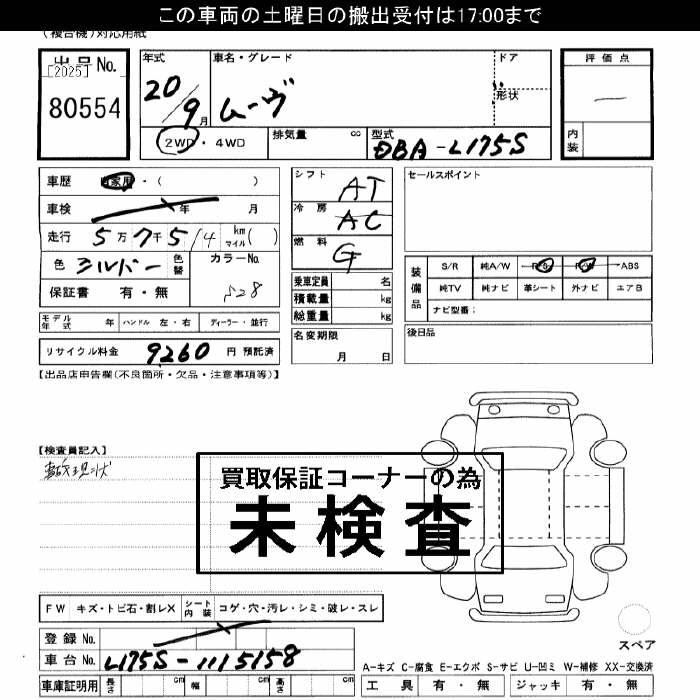 この車両の土曜日の搬出受付は17:00まで
(複合機)対応用紙
出品No.
[2025]
80554
年式
20/9月
車名・グレード
ムーヴ
ドア
形状
2WD・4WD
排気量 cc
型式 DBA-L175S
評価点
—
内装
車歴 自家用・( )
車検 年 月
走行 5万7千5/4 km マイル( )
色 シルバー 色替
カラーNo. S28
保証書 有・無
モデル年式 年 ハンドル 左・右 ディーラー・並行
リサイクル料金 9260 円 預託済
シフト AT
冷房 AC
燃料 G
乗車定員 名
積載量 kg
総重量 kg
名変期限
月 日
セールスポイント
装備品
S/R 純A/W P/S P/W ABS
純TV 純ナビ 革シート 外ナビ エアB
ナビ型番:
後日品
【出品店申告欄(不良箇所・欠品・注意事項等)】
【検査員記入】
現状
買取保証コーナーの為
未検査
FW キズ・トビ石・割レX
シート内装 コゲ・穴・汚レ・シミ・破レ・スレ
登録No.
車台No. L175S-1115158
車庫証明用 長さ cm 幅 cm 高さ cm
スペア
A-キズ C-腐食 E-エクボ S-サビ U-凹ミ W-補修 XX-交換済
工具 有・無 ジャッキ 有・無